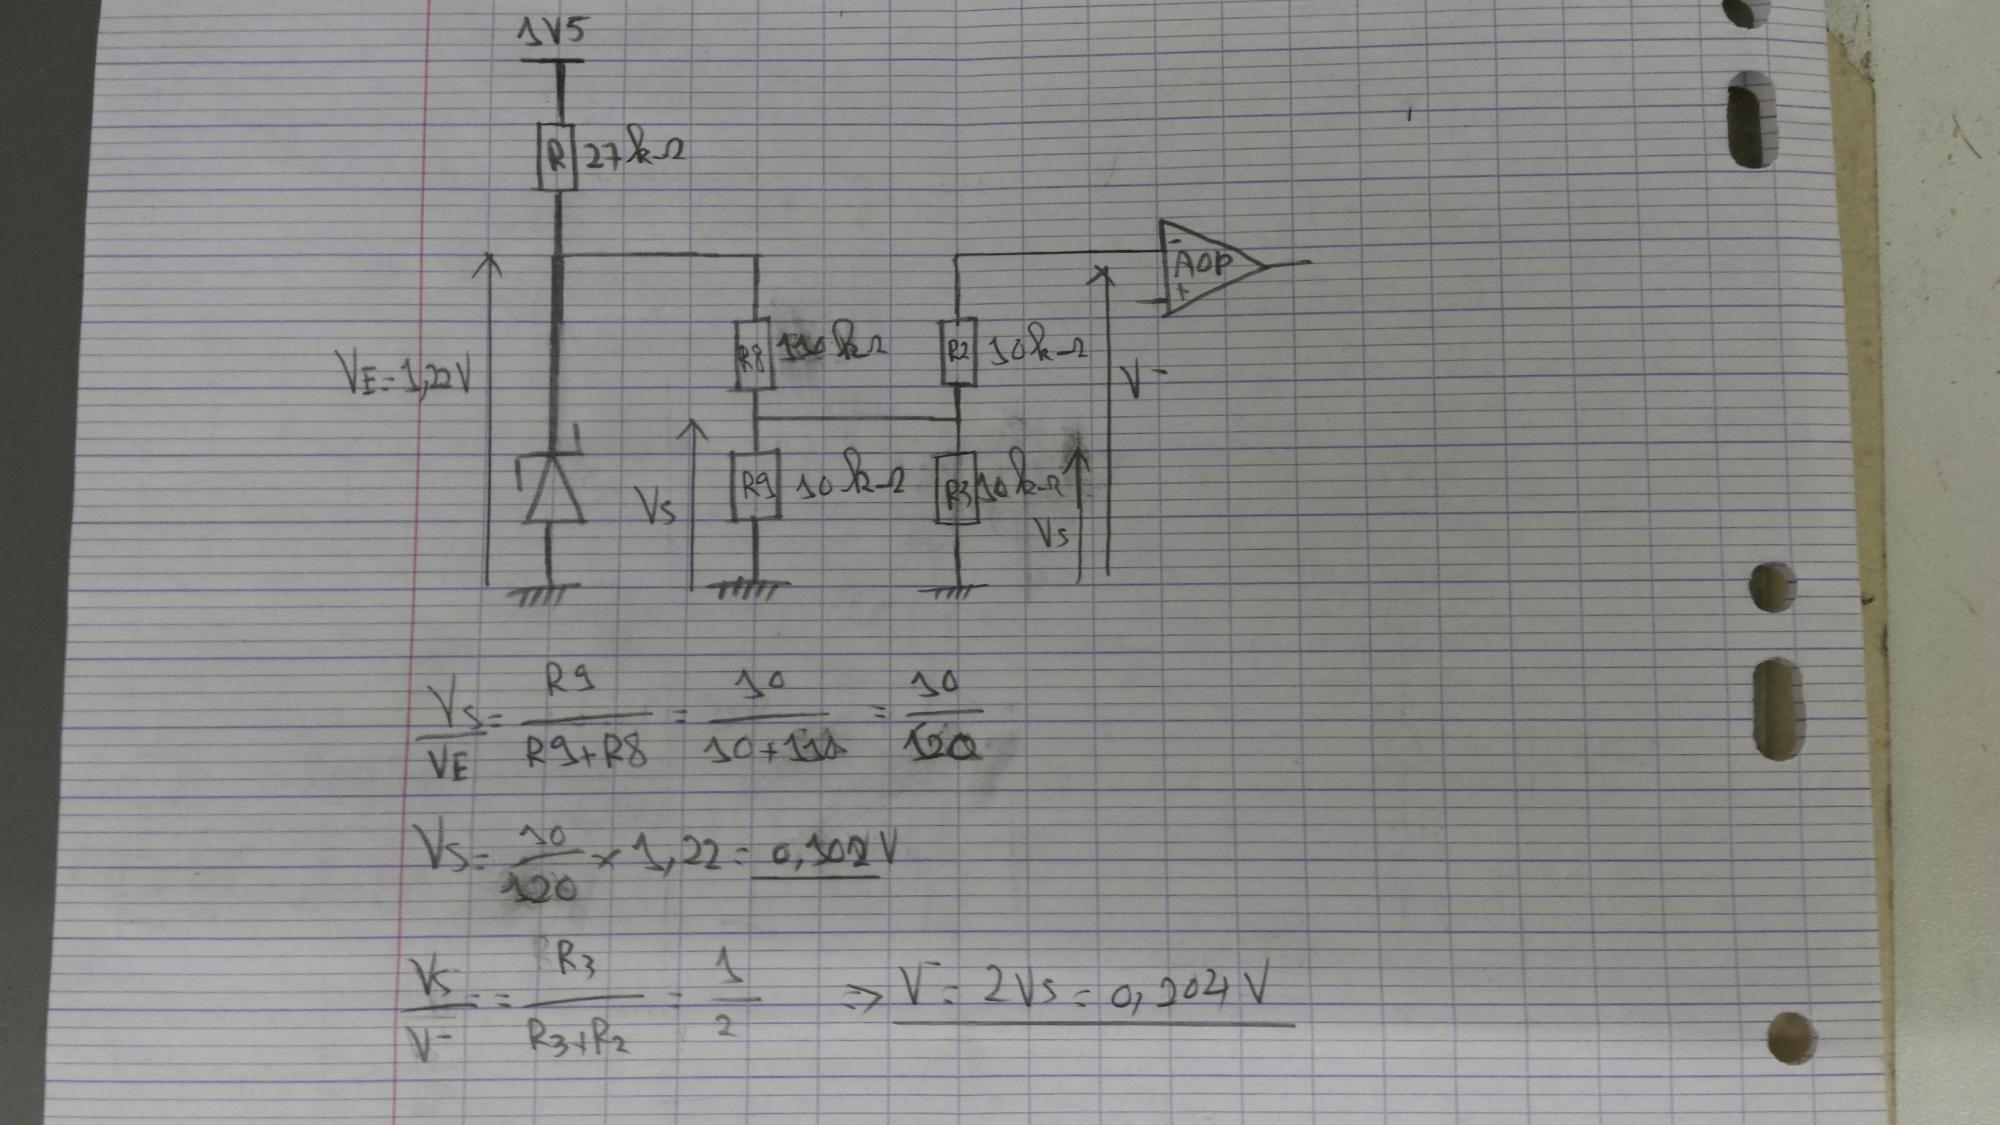 1V5
R 27kΩ
- AOP +
VE=1,22V
R8 110kΩ
R2 10kΩ
V-
Vs
R9 10kΩ
R3 10kΩ
Vs
Vs/VE = R9/(R9+R8) = 10/(10+110) = 10/120
Vs = 10/120 × 1,22 = 0,102V
Vs/V- = R3/(R3+R2) = 1/2 ⇒ V- = 2Vs = 0,204V